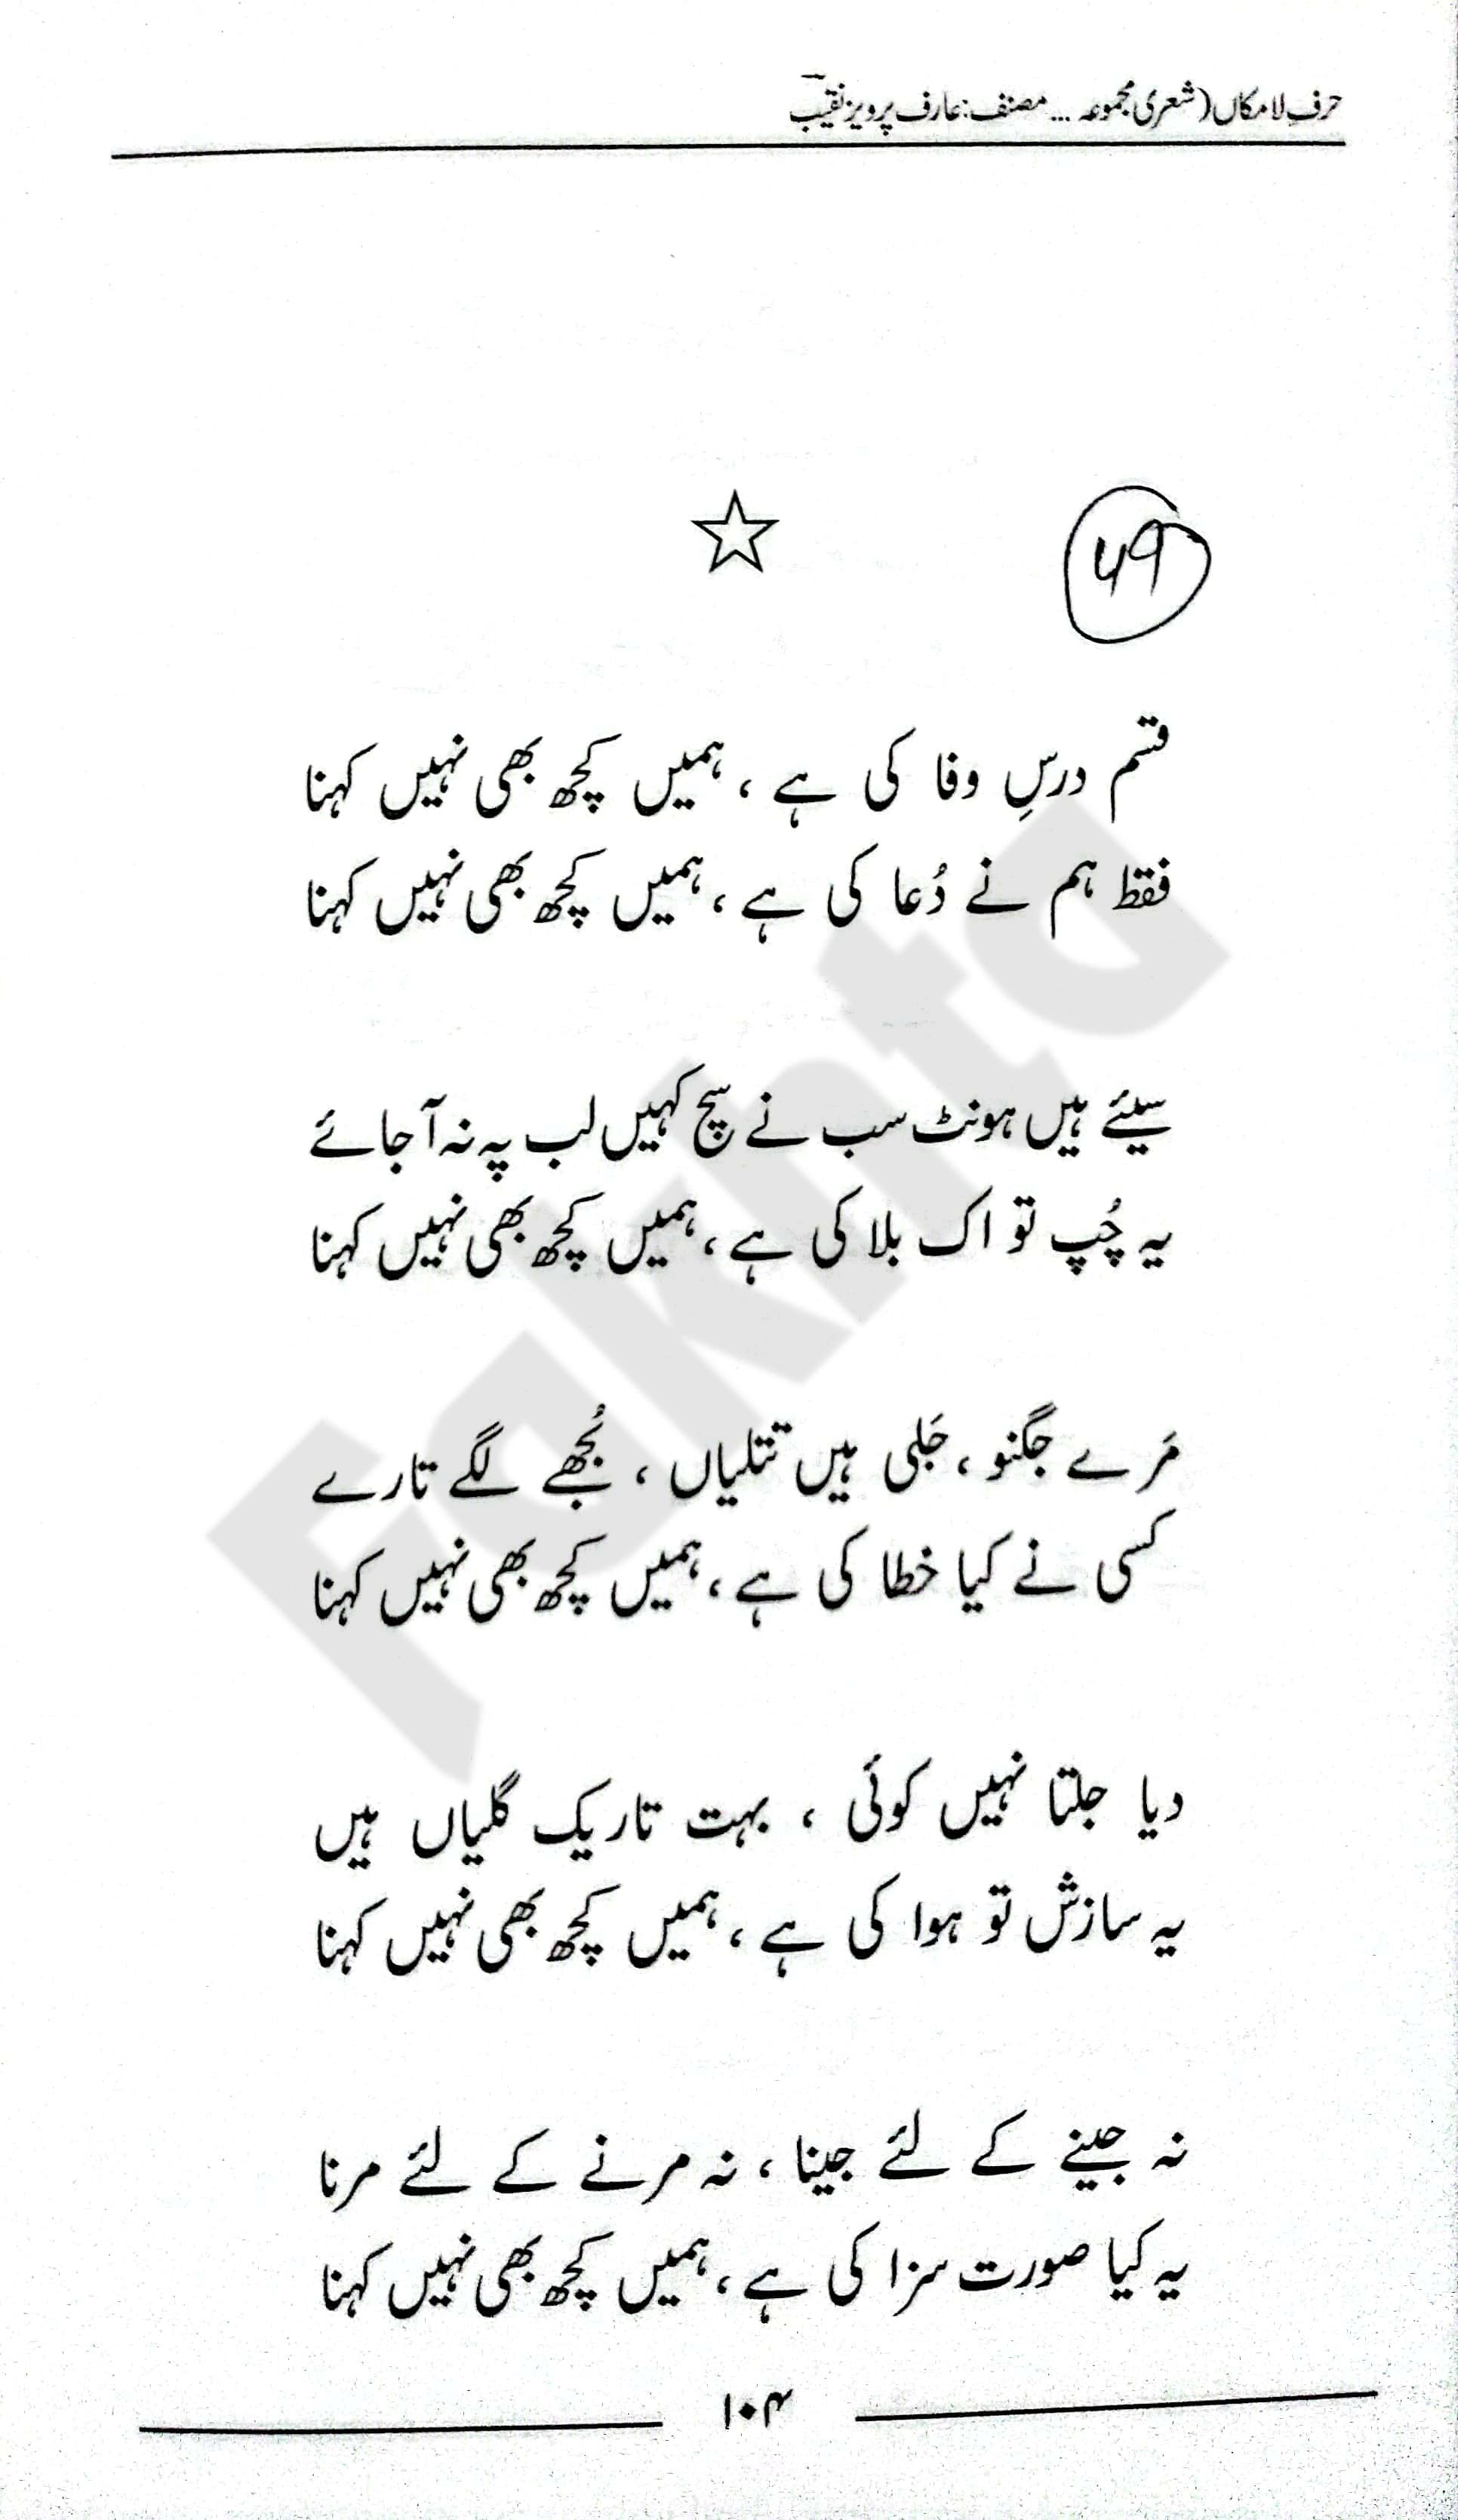 حرفِ لامکاں (شعری مجموعہ ... مصنف: عارف پرویز نقیب
49
قسم درسِ وفا کی ہے ، ہمیں کچھ بھی نہیں کہنا
فقط ہم نے دُعا کی ہے ، ہمیں کچھ بھی نہیں کہنا
سیئے ہیں ہونٹ سب نے سچ کہیں لب پہ نہ آ جائے
یہ چُپ تو اک بلا کی ہے ، ہمیں کچھ بھی نہیں کہنا
مَرے جگنو ، جَلی ہیں تتلیاں ، بُجھے لگے تارے
کسی نے کیا خطا کی ہے ، ہمیں کچھ بھی نہیں کہنا
دیا جلتا نہیں کوئی ، بہت تاریک گلیاں ہیں
یہ سازش تو ہوا کی ہے ، ہمیں کچھ بھی نہیں کہنا
نہ جینے کے لئے جینا ، نہ مرنے کے لئے مرنا
یہ کیا صورت سزا کی ہے ، ہمیں کچھ بھی نہیں کہنا
۱۰۴
Fakhta